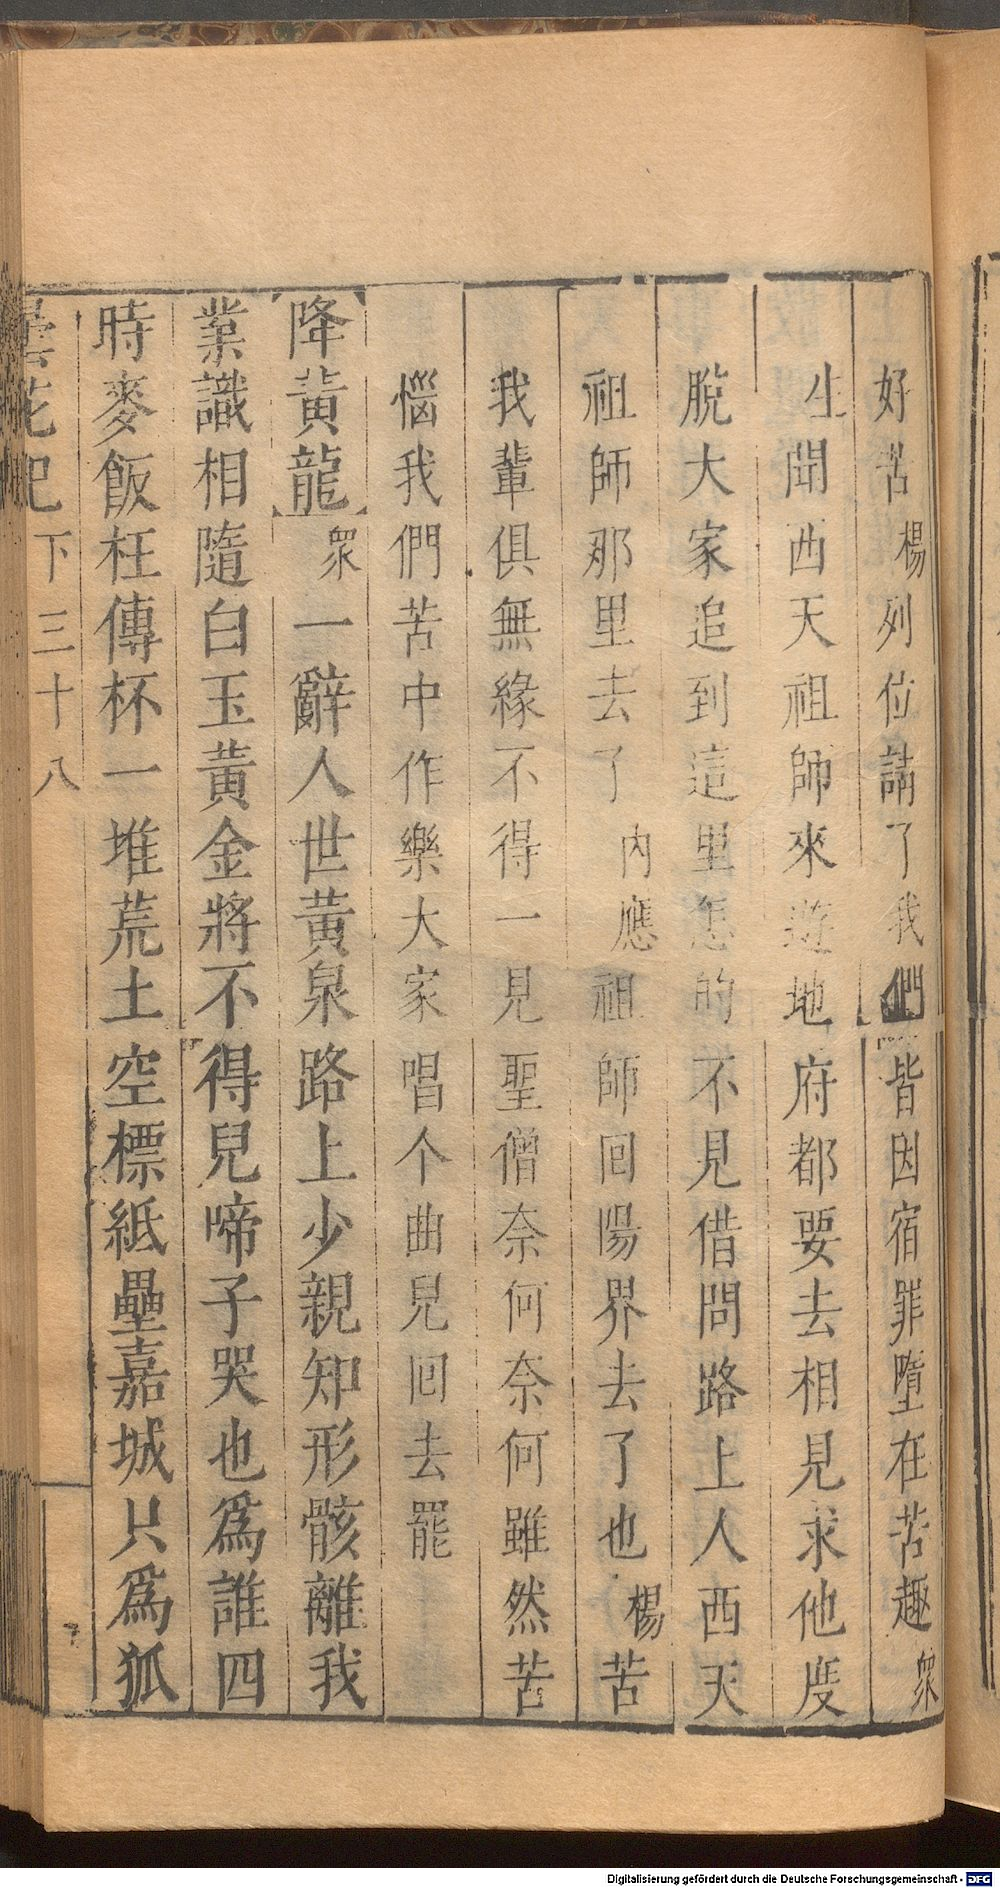 好苦楊列位請了我們皆因宿罪墮在苦趣衆
生聞西天祖師來遊地府都要去相見求他度
脫大家追到這里怎的不見借問路上人西天
祖師那里去了內應祖師回陽界去了也楊苦
我輩俱無緣不得一見聖僧奈何奈何雖然苦
惱我們苦中作樂大家唱个曲兒回去罷
降黃龍衆一辭人世黃泉路上少親知形骸離我
業識相隨白玉黃金將不得兒啼子哭也爲誰四
時麥飯枉傳杯一堆荒土空標紙壘嘉城只爲狐
曇花記 下 三十八
Digitalisierung gefördert durch die Deutsche Forschungsgemeinschaft - DFG